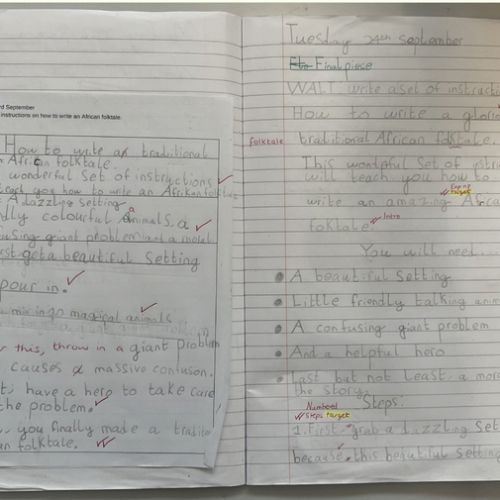 rd September
instructions on how to write an African folktale.
How to write a traditional
African folktale.
wonderful set of instructions
teach you how to write an African folktale
A dazzling setting
dly colourful animals, a
fusing giant problem and a moral
first get a beautiful setting
pour in.
mix in 20 magical animals
r this, throw in a giant problem
causes a massive confuson.
t, have a hero to take care
the problem.
, you finally made a tradito
an folktale.
Tuesday 24th september
Final piece
WALT: write a set of instructio
How to write a glorio
folktale
traditional African folktale.
This wondful set of istru
will teach you how to
Expand
target
write an amazing Africa
foktale.
Intro
You will need...
A beautiful setting
Little friendly talking anim
A confusing giant problem
And a helpful hero
Last but not least, a mora
the story.
Numbered
Steps:
Steps target
1. First, grab a dazzling set
because, this beautiful setting